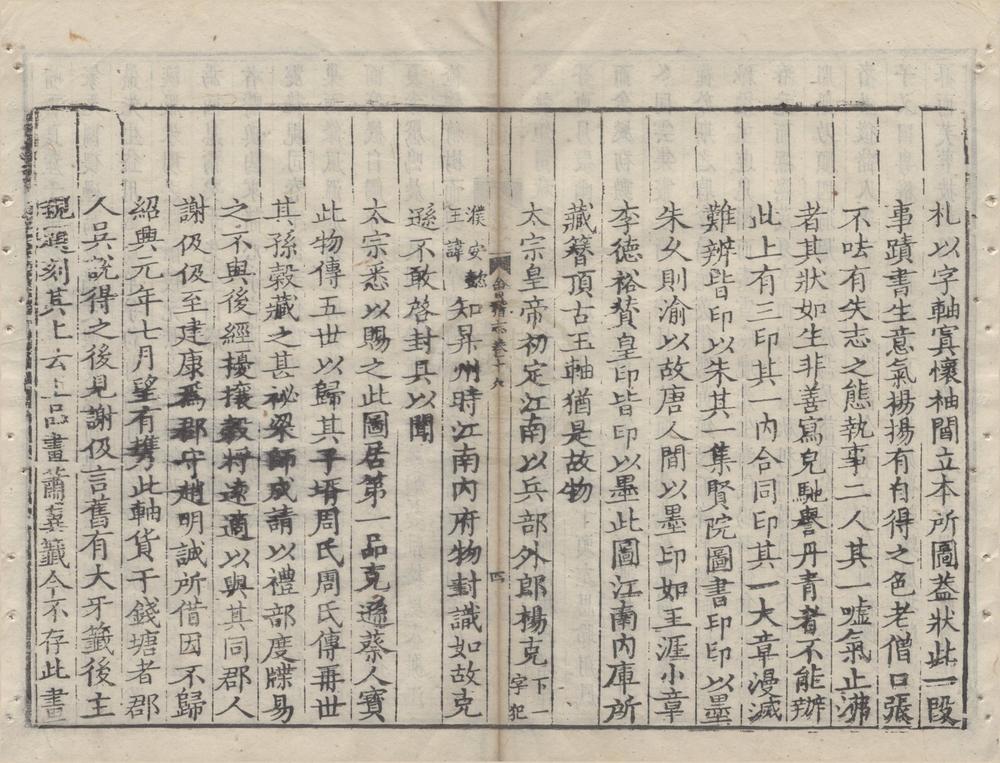 札以字軸寘懷袖閻立本所圖葢狀此一段
事蹟書生意氣揚揚有自得之色老僧口張
不呿有失志之態執事二人其一嘘氣止沸
者其狀如生非善寫皃馳譽丹青者不能辦
此上有三印其一內合同印其一大章漫滅
難辨皆印以朱其一集賢院圖書印印以墨
朱久則渝以故唐人間以墨印如王涯小章
李德裕贊皇印皆印以墨此圖江南內庫所
藏簮頂古玉軸猶是故物
太宗皇帝初定江南以兵部外郎楊克下一字犯
濮安懿王諱知昇州時江南內府物封識如故克
遜不敢啓封具以聞
太宗悉以賜之此圖居第一品克遜蔡人寳
此物傳五世以歸其子壻周氏周氏傳再世
其孫穀藏之甚祕梁師成請以禮部度牒易
之不與後經擾攘穀將遠適以與其同郡人
謝伋伋至建康爲郡守趙明誠所借因不歸
紹興元年七月望有携此軸貨于錢塘者郡
人吳說得之後見謝伋言舊有大牙籤後主
親題刻其上云上品畫蕭翼籤今不存此畫
卷十六
四